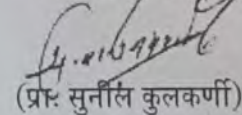 (प्रो. सुनील कुलकर्णी)